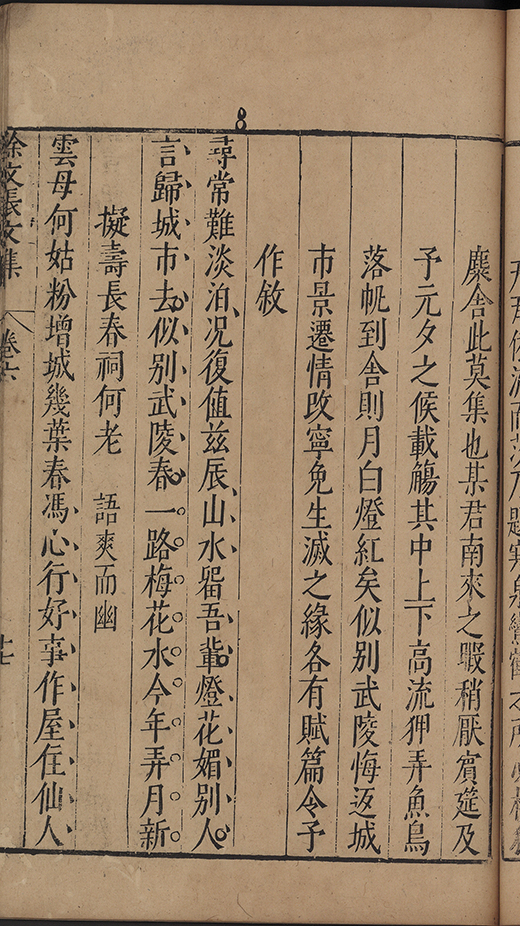 8
麋舍此莫集也某君南來之暇稍厭賓筵及
予元夕之候載觴其中上下高流狎弄魚鳥
落帆到舍則月白燈紅矣似別武陵悔返城
市景遷情改寧免生滅之緣各有賦篇令予
作敘
尋常難淡泊况復值兹辰山水畱吾輩燈花媚別人
言歸城市去似別武陵春一路梅花水今年弄月新
擬壽長春祠何老 語爽而幽
雲母何姑粉增城幾葉春馮心行好事作屋住仙人
徐文長文集 卷六 十七